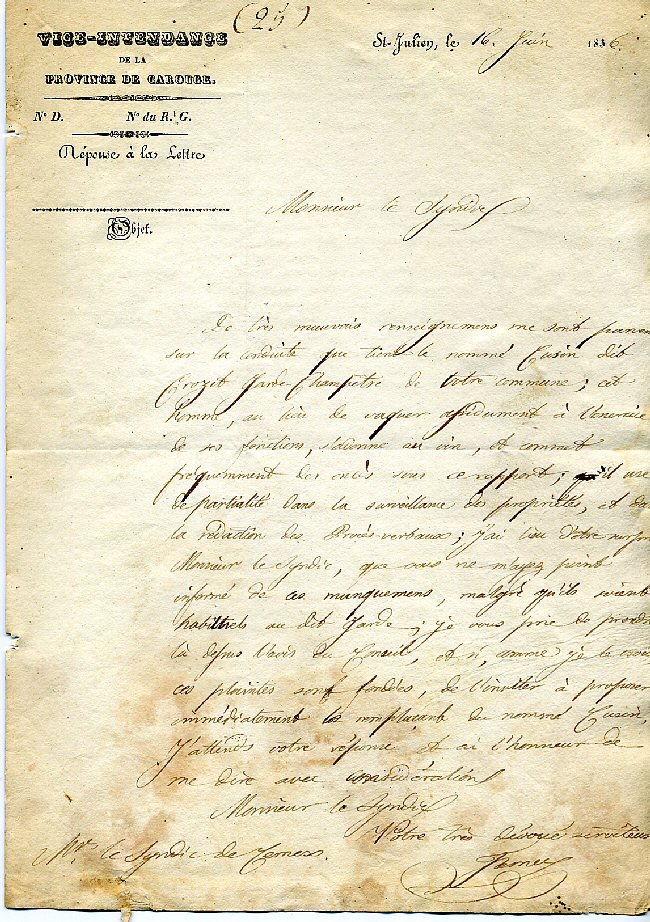 (25)
VICE-INTENDANCE
DE LA
PROVINCE DE CAROUGE.
St-Julien, le 16. Juin 1836.
N° D. N° du R.l G.
Réponse à la Lettre
Objet.
Monsieur le Syndic
De très mauvais renseignemens me sont parven
sur la conduite que tient le nommé Cusin dit
Crozit Garde-Champêtre de votre commune; cet
homme, au lieu de vaquer assidument à l'exercice
de ses fonctions, s'adonne au vin, et commet
fréquemment des excès sous ce rapport; qu'il use
de partialité dans la surveillance des propriétés, et dan
la rédaction des Procès-verbaux; j'ai lieu d'être surpri
Monsieur le Syndic, que vous ne m'ayez point
informé de ces manquemens, malgré qu'ils soient
habituels au dit Garde; je vous prie de prendre
là dessus l'avis du Conseil, et si, comme je le crois
ces plaintes sont fondées, de l'inviter à proposer
immédiatement le remplaçant du nommé Cusin,
J'attends votre réponse et ai l'honneur de
me dire avec considération
Monsieur le Syndic
Votre très dévoué serviteur
Mr. le Syndic de Cernex.